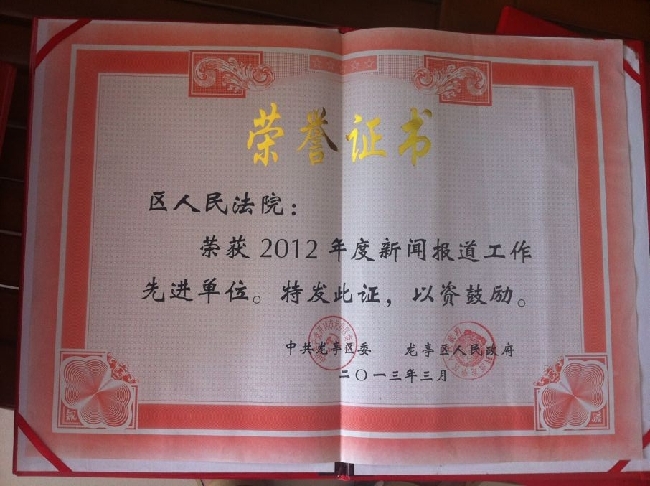 荣誉证书
区人民法院：
荣获2012年度新闻报道工作
先进单位。特发此证，以资鼓励。
中共龙亭区委 龙亭区人民政府
二〇一三年三月